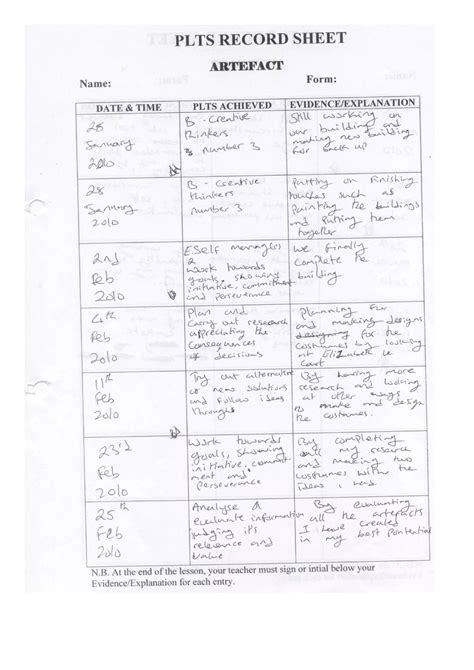 PLTS RECORD SHEET
ARTEFACT
Name:
Form:
DATE & TIME
PLTS ACHIEVED
EVIDENCE/EXPLANATION
28
January
2010
B - Creative
thinkers
number 3
Still working on
our building and
making new building
for back up
28
January
2010
B - Creative
thinkers
number 3
Putting on finishing
touches such as
Painting the buildings
and Putting them
together
2nd
Feb
2010
E.Self managers
2
Work towards
goals, showing
initiative, commitment
and perseverance
We finally
complete the
building
4th
Feb
2010
Plan and
Carry out research
appreciating the
Consequences
of decisions
Planning for
and making designs
designing for the
costumes by looking
at Elizabeth
11th
Feb
2010
Try out alternatives
or new solutions
and follow ideas
through
By having more
research and looking
at other ways
to make and design
the costumes.
23rd
Feb
2010
Work towards
goals, showing
initiative, commit
ment and
Perseverance
By completing
all my research
and making two
costumes with the
ideas I had
25th
Feb
2010
Analyse &
evaluate information
judging it's
relevance and
value
By evaluating
all the artefacts
I have created
in my best Pontential
N.B. At the end of the lesson, your teacher must sign or intial below your
Evidence/Explanation for each entry.